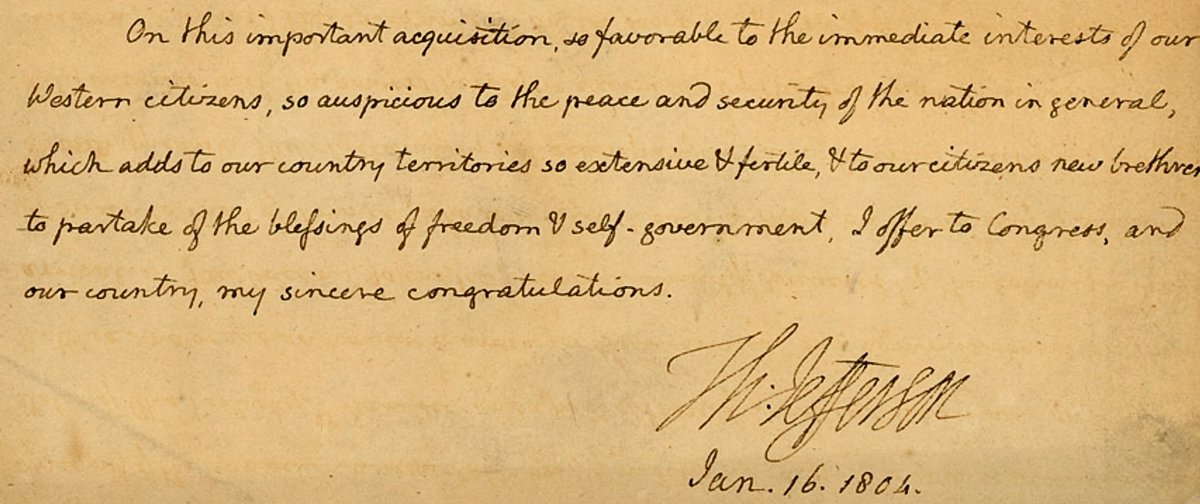 On this important acquisition, so favorable to the immediate interests of our
Western citizens, so auspicious to the peace and security of the nation in general,
which adds to our country territories so extensive & fertile, & to our citizens new brethren
to partake of the blessings of freedom & self-government, I offer to Congress, and
our country, my sincere congratulations.
Th: Jefferson
Jan. 16. 1804.